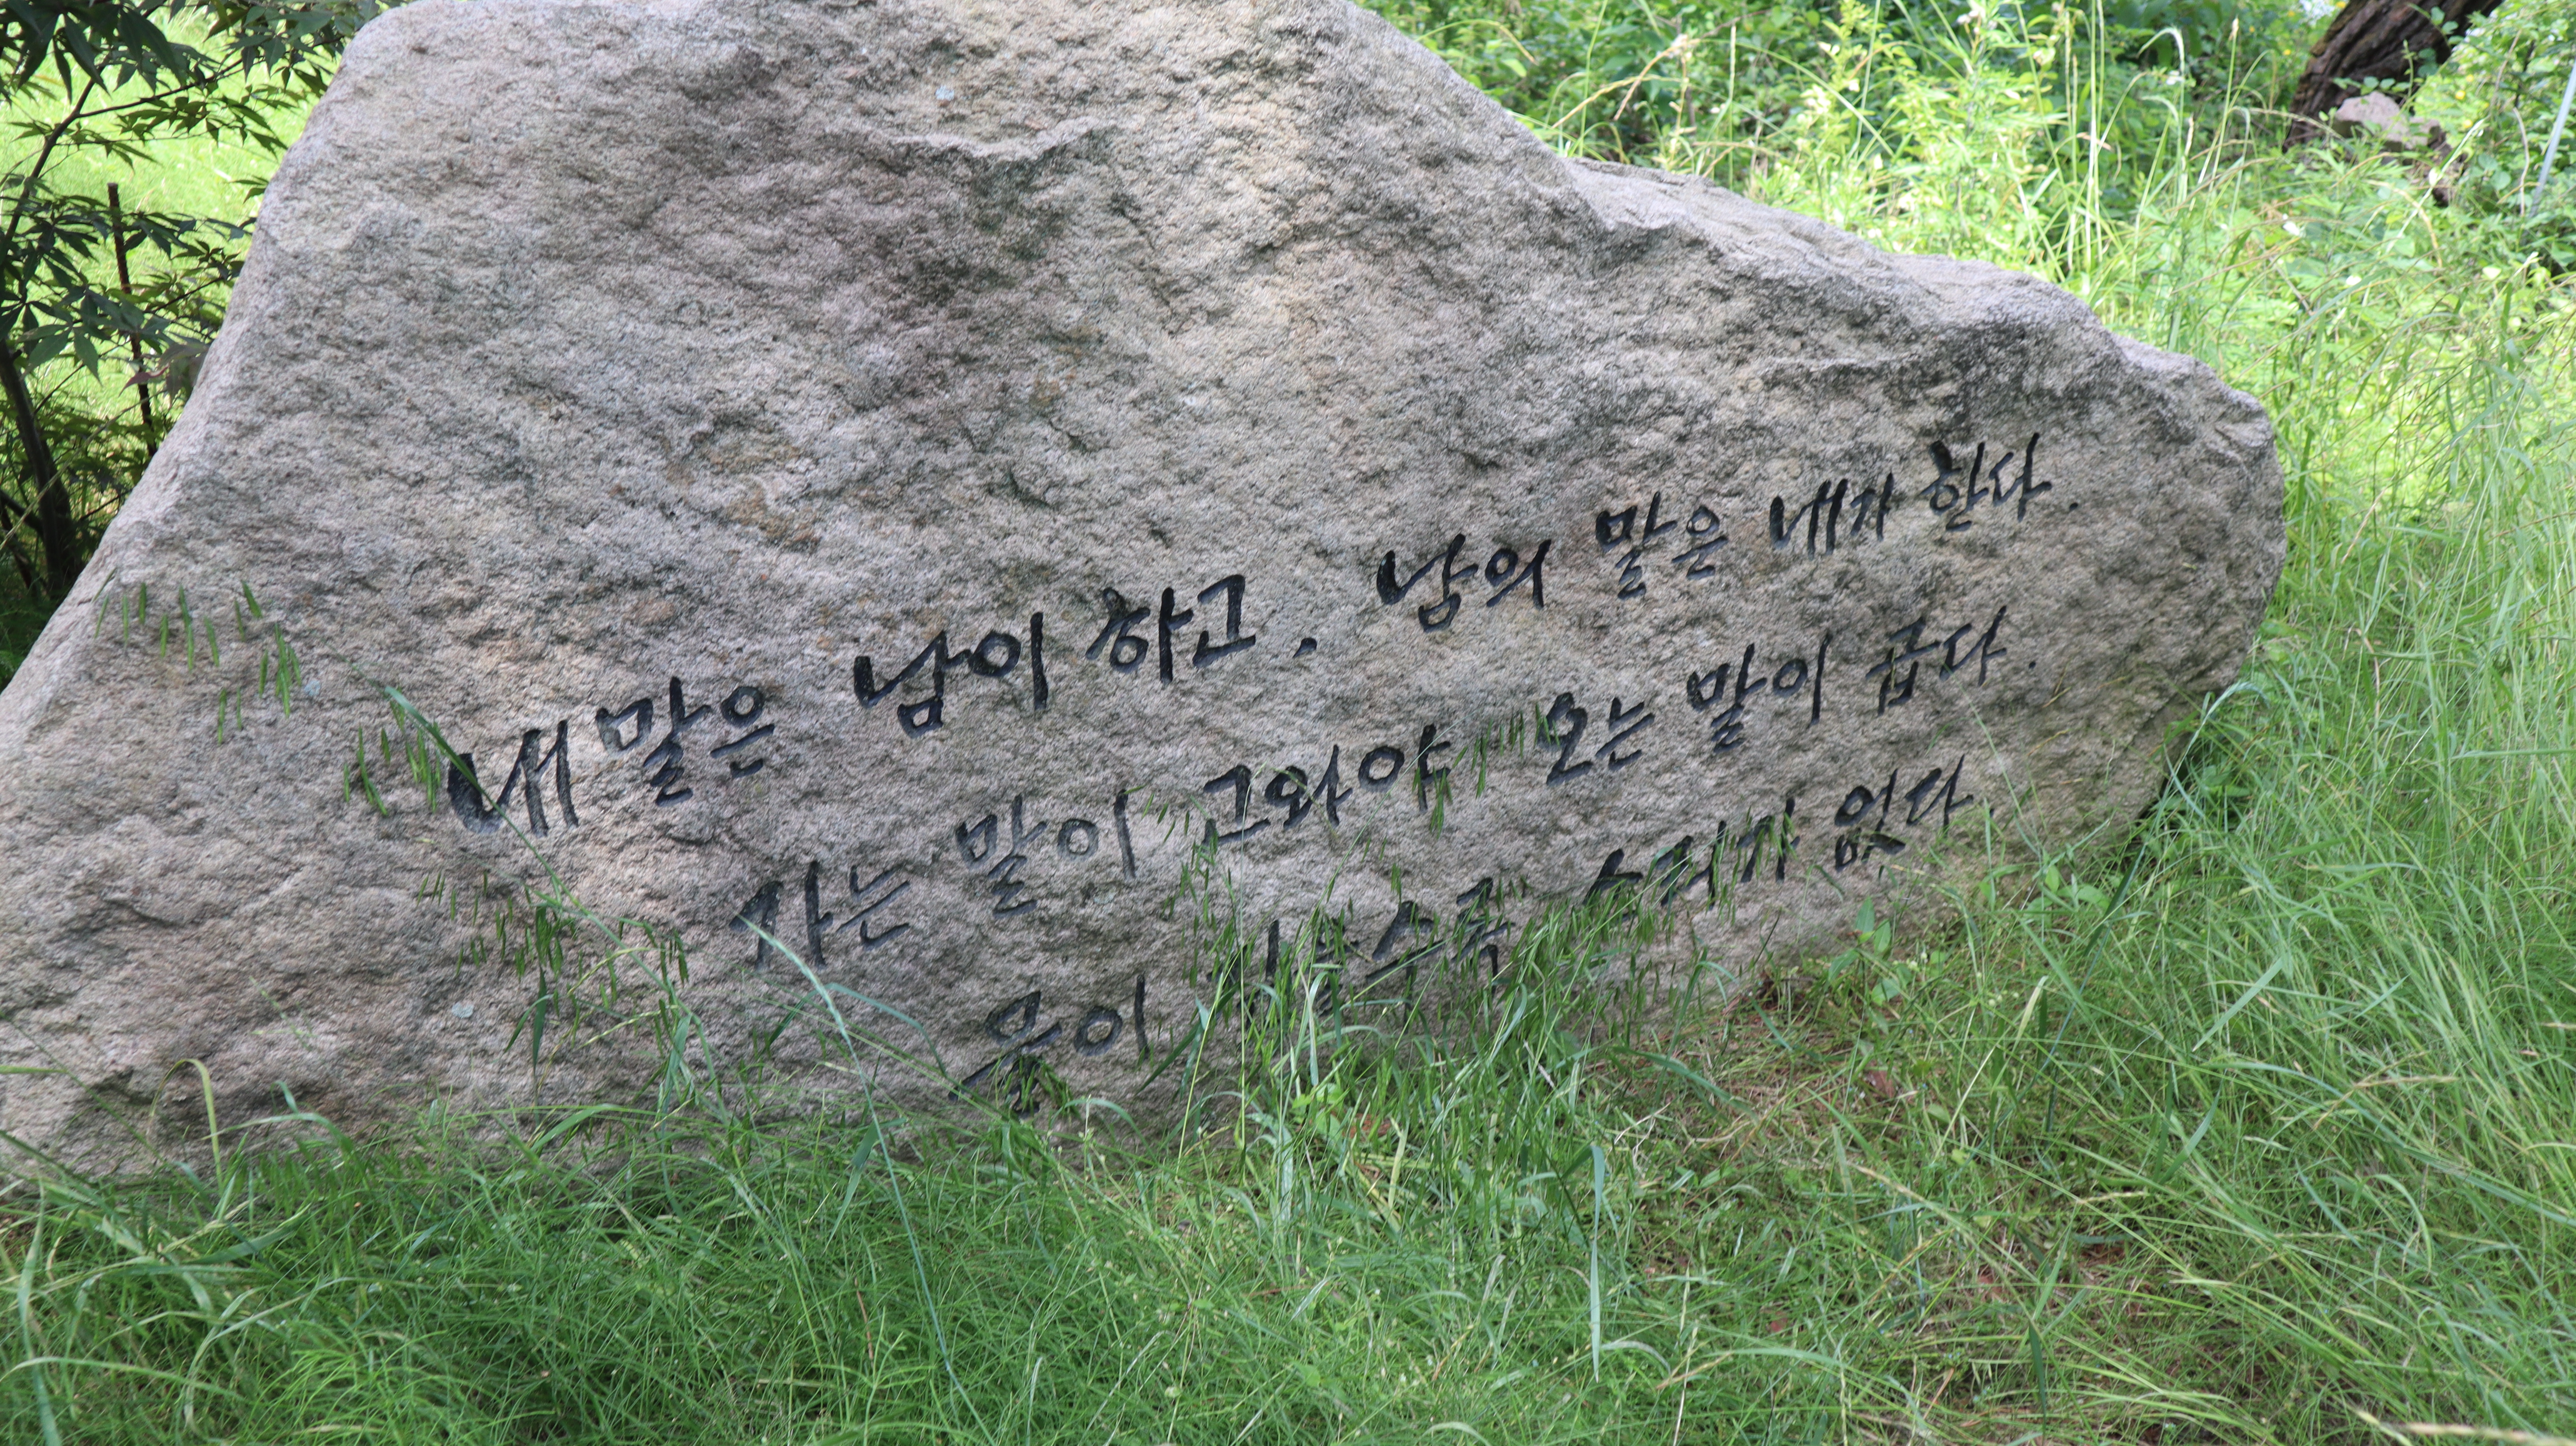 내 말은 남이 하고. 남의 말은 내가 한다.
사는 말이 고와야 오는 말이 곱다.
물이 깊을수록 소리가 없다.